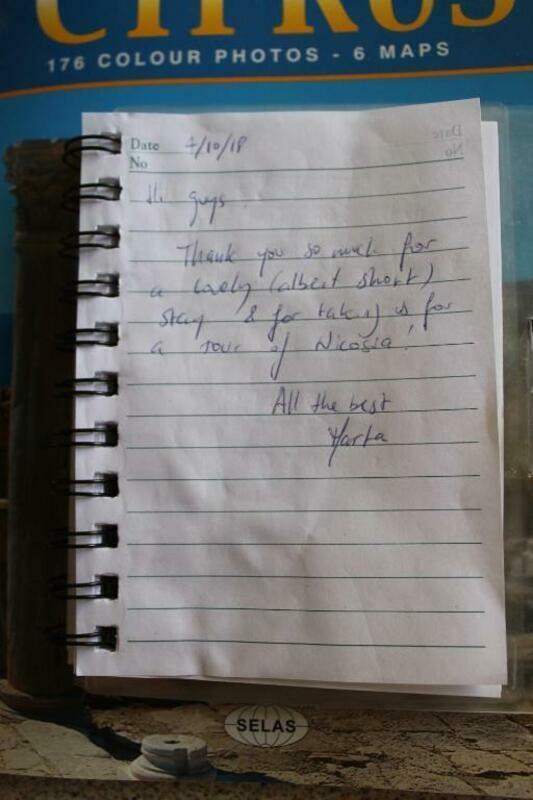 CYPRUS
176 COLOUR PHOTOS - 6 MAPS
Date 7/10/18
Date
No
No
Hi guys
Thank you so much for
a lovely (albeit short)
stay & for taking us for
a tour of Nicosia!
All the best
Marta
SELAS